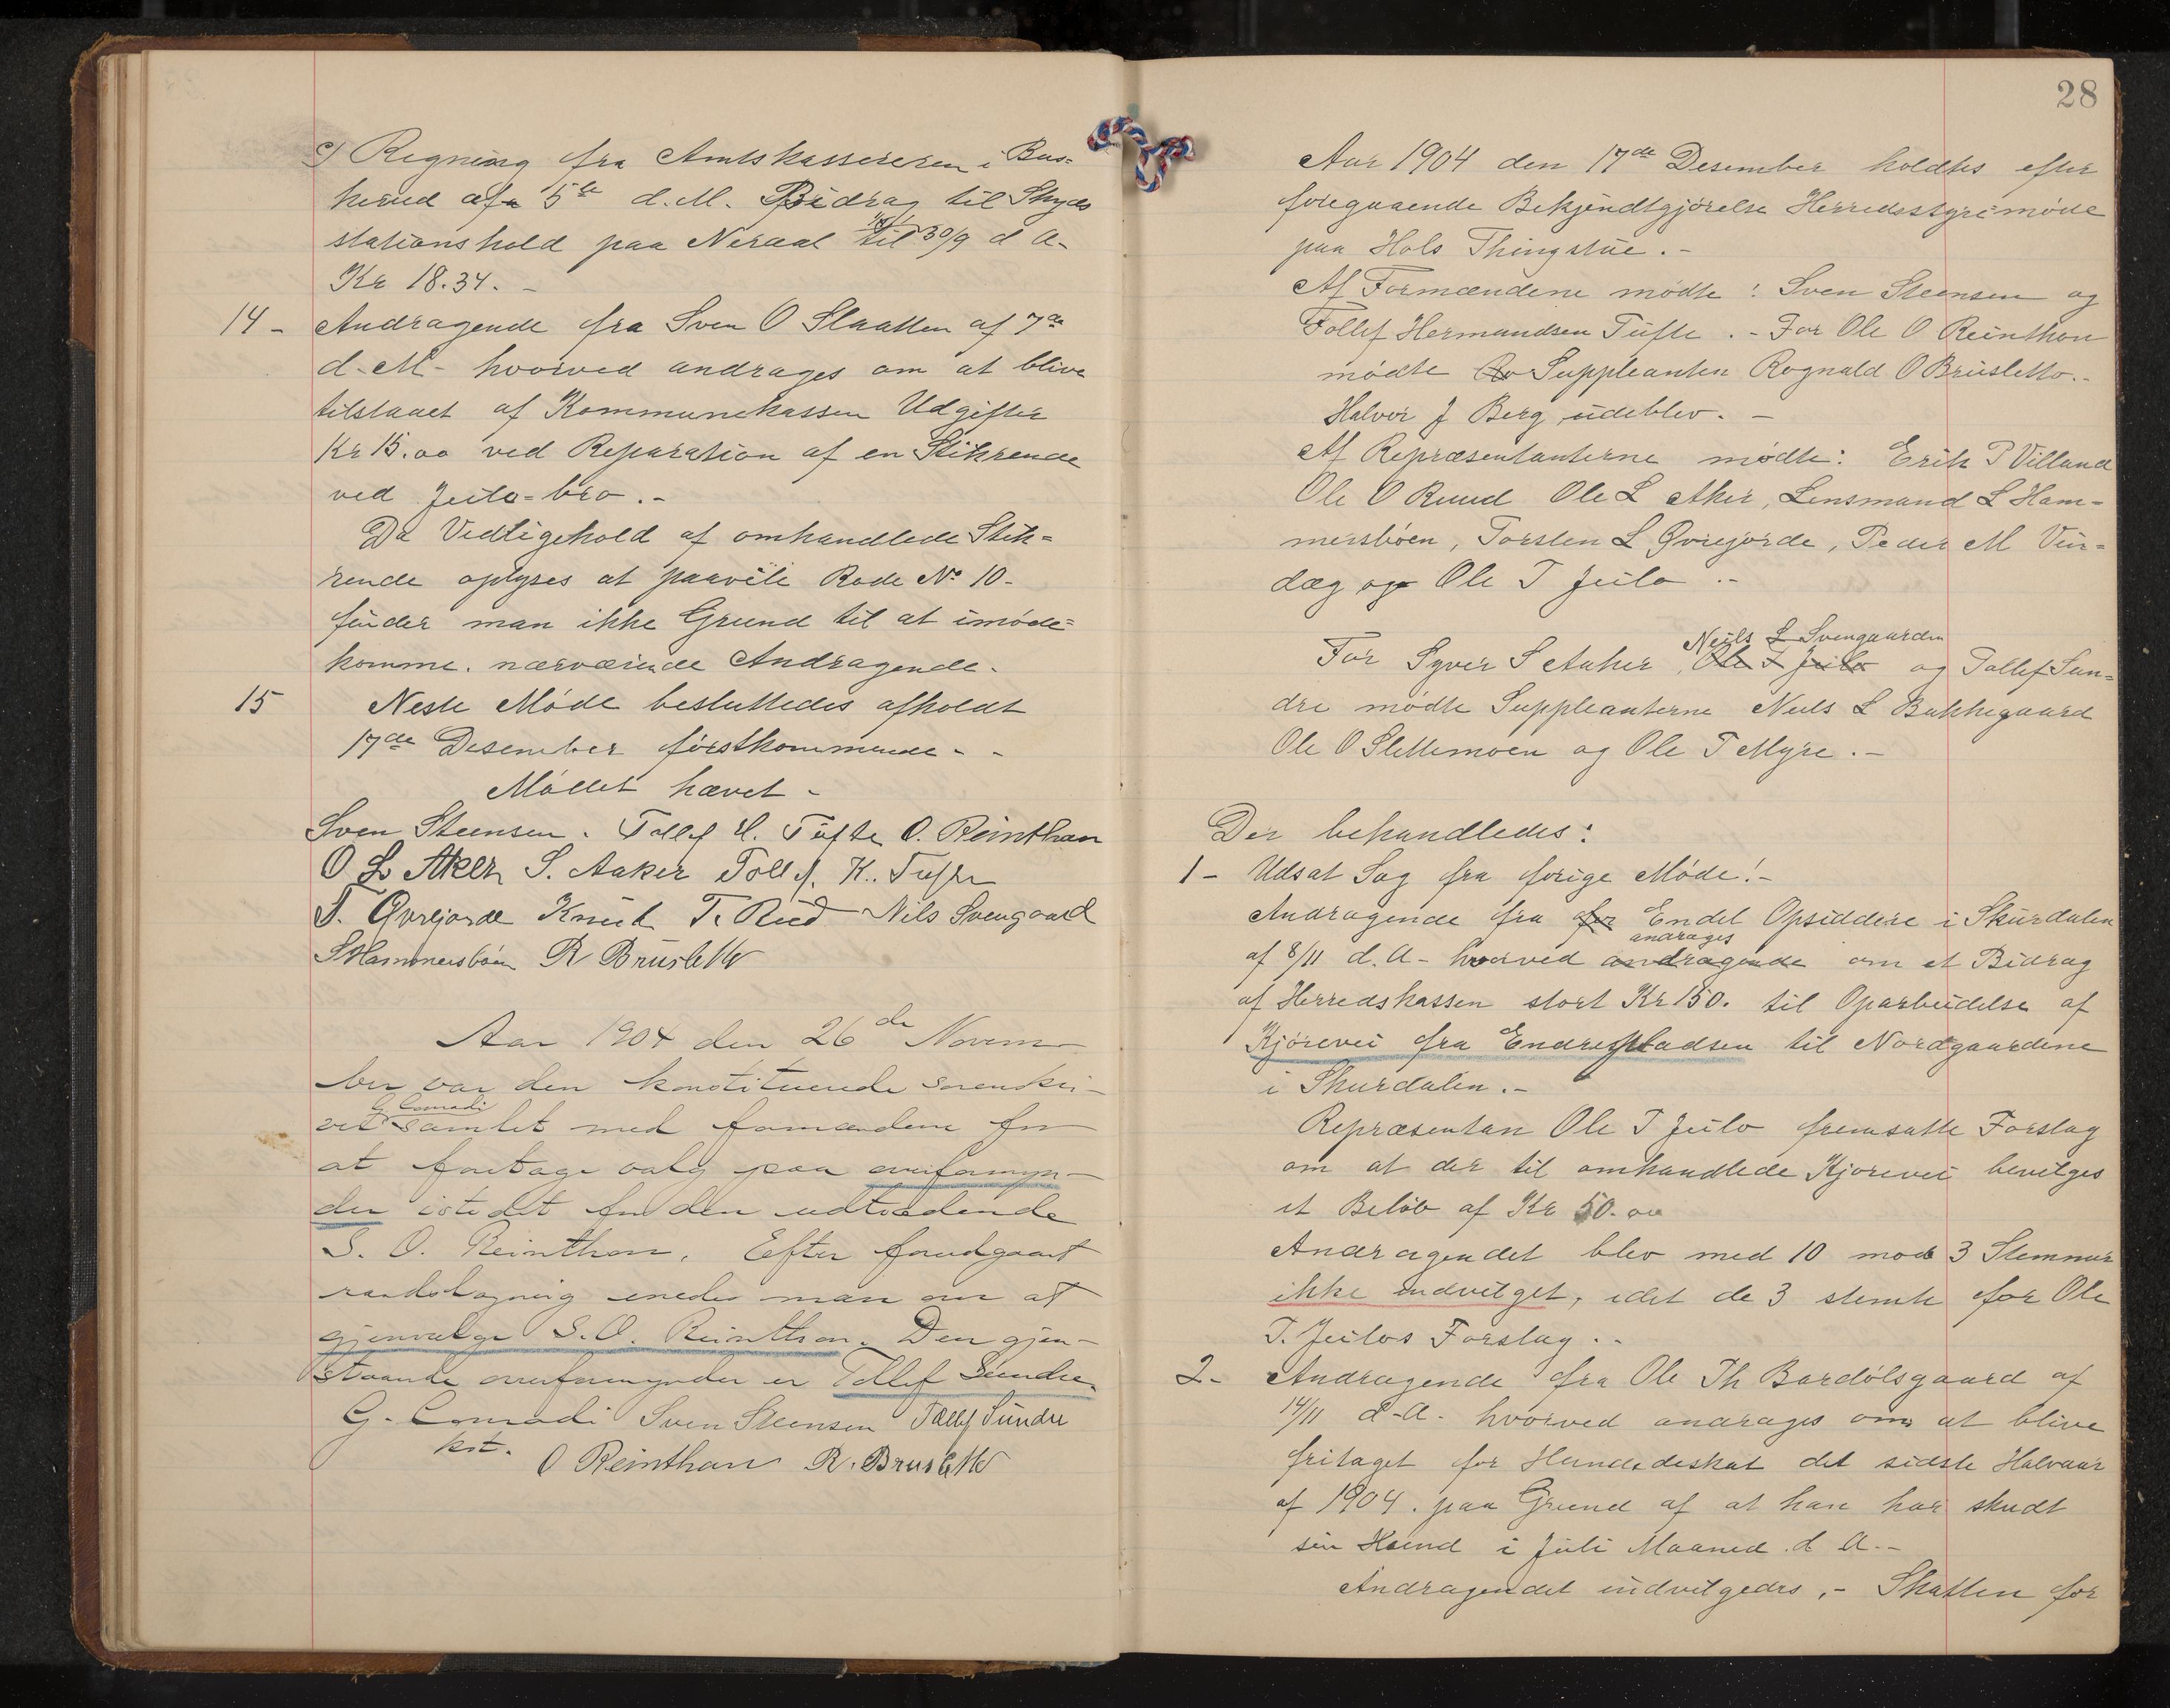 c) Regning fra Amtskassereren i Bus=
kerud af 5te d.M. Bidrag til Skyds
stationshold paa Neraal til 30/9 d A-
Kr 18.34. -
14 - Andragende fra Sven O Slaatten af 7de
d-M- hvorved andrages om at blive
tilstaaet af Kommunekassen Udgifter
Kr 15.00 ved Reparation af en Stikrende
ved Jeilo=bro.-
Da Vedligehold af omhandlede Stik=
rende oplyses at paavile Rode No 10-
finder man ikke Grund til at imøde=
komme. nærværende Andragende.
15 Neste Møde besluttedes afholdt
17de Desember førstkommende - -
Mødet hævet -
Sven Steensen. Tollef H. Tufte O. Reinthon
O L Aker S. Aaker Tollef. K. Tufte
T. Øvrejorde Knud T. Rud Nils Svengaard
L Hammersbøen R Brusletto
Aar 1904 den 26de Novem-
ber var den konstituerede sorenskri-
ver G. Conradi samlet med formændene for
at foretage valg paa overformyn-
der istedet for den udtrædende
S. O. Reinthon. Efter foredgaaet
raadslagning enedes man om at
gjenvælge S.O. Reinthon. Den gjen-
staaende overformynder er Tollef Sundre.
G. Conradi Sven Steensen Tollef Sundre
kst. O Reinthon R. Brusletto
28
Aar 1904 den 17de Desember holdtes efter
foregaaende Bekjendtgjørelse Herredsstyremøde
paa Hols Thingstue.-
Af Formændene mødte: Sven Steensen og
Tollef Hermandsen Tufte.- For Ole O Reinthon
mødte Ro Suppleanten Rognald O Brusletto.-
Halvor J Berg udeblev. -
Af Repræsentanterne mødte: Erik P Villand
Ole O Ruud Ole L Aker, Lensmand L Ham=
mersbøen, Torsten L Øvrejorde, Peder M Vin=
dæg og Ole T Jeilo .-
For Syver S Aaker, Ole T Jeilo Neils L Svengaarden og Tollef Sun=
dre mødte Suppleanterne Neils L Bakkegaard
Ole O Slettemoen og Ole T Myre.-
Der behandledes:
1 - Udsat Sag fra forige Møde!-
Andragende fra for Endel Opsiddere i Skurdalen
af 8/11 d.A- hvorved andragende andrages om et Bidrag
af Herredskassen stort Kr 150. til Oparbeidelse af
Kjørevei fra Endrepladsen til Nordgaardene
i Skurdalen.-
Repræsentan Ole T Jeilo fremsatte Forslag
om at der til omhandlede Kjorevei bevilges
et Beløb af Kr 50.00
Andragendet blev med 10 mod 3 Stemmer
ikke indvilget, idet de 3 stemte for Ole
T. Jeilos Forslag. -
2- Andragende fra Ole Th Bardølsgaard af
14/11 d-A- hvorved andrages om at blive
fritaget for Hundedeskat det sidste Halvaar
af 1904. paa Grund af at han har skudt
sin Hund i Juli Maaned d A.-
Andragendet indvilgedes,- Skatten for